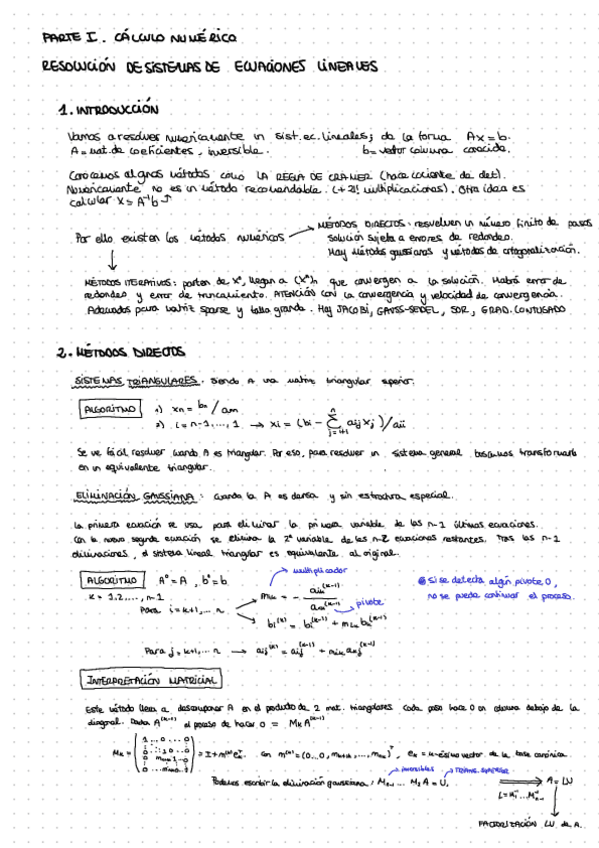 PARTE I. CÁLCULO NUMÉRICO
RESOLUCIÓN DE SISTEMAS DE ECUACIONES LINEALES
1. INTRODUCCIÓN
Vamos a resolver numéricamente un sist. ec. lineales; de la forma Ax = b.
A = mat. de coeficientes, inversible. b = vector columna conocida.
Conocemos algunos métodos como LA REGLA DE CRAMER (hace cociente de det).
Numéricamente no es un método recomendable. (+ 2! multiplicaciones). Otra idea es
calcular x = A⁻¹b
Por ello existen los métodos numéricos → MÉTODOS DIRECTOS: resuelven un número finito de pasos
solución sujeta a errores de redondeo.
Hay métodos gaussianos y métodos de ortogonalización.
MÉTODOS ITERATIVOS: parten de x⁰, llegan a (xⁿ)ₙ que convergen a la solución. Habrá error de
redondeo y error de truncamiento. ATENCIÓN con la convergencia y velocidad de convergencia.
Adecuados para matriz sparse y talla grande. Hay JACOBI, GAUSS-SEIDEL, SOR, GRAD. CONJUGADO
2. MÉTODOS DIRECTOS
SISTEMAS TRIANGULARES. Siendo A una matriz triangular superior.
ALGORITMO 1) xn = bn / ann
2) i = n-1, ..., 1 → xi = (bi - Σ_{j=i+1}^{n} aij xj) / aii
Se ve fácil resolver cuando A es triangular. Por eso, para resolver un sistema general buscamos transformarlo
en un equivalente triangular.
ELIMINACIÓN GAUSSIANA: cuando la A es densa y sin estructura especial.
La primera ecuación se usa para eliminar la primera variable de las n-1 últimas ecuaciones.
Con la nueva segunda ecuación se elimina la 2ª variable de las n-2 ecuaciones restantes. Tras las n-1
eliminaciones, el sistema lineal triangular es equivalente al original.
multiplicador
ALGORITMO A⁰ = A, b⁰ = b
k = 1, 2, ..., n-1
Para i = k+1, ... n
mik = - aik^(k-1) / akk^(k-1) → pivote
bi^(k) = bi^(k-1) + mik bk^(k-1)
Si se detecta algún pivote 0,
no se puede continuar el proceso.
Para j = k+1, ... n → aij^(k) = aij^(k-1) + mik akj^(k-1)
INTERPRETACIÓN MATRICIAL
Este método lleva a descomponer A en el producto de 2 mat. triangulares. Cada paso hace 0 en columna debajo de la
diagonal. Dada A^(k-1) el proceso de hacer 0 = Mk A^(k-1)
Mk = = I + m^(k) ekᵀ. Con m^(k) = (0...0, mk+1,k, ..., mnk)ᵀ, ek = k-ésimo vector de la base canónica.
inversibles TRIANG. SUPERIOR
Podemos escribir la eliminación gaussiana: Mn-1 ... M1 A = U, ⟹ A = LU
L = M1⁻¹ ... Mn-1⁻¹
FACTORIZACIÓN LU de A.